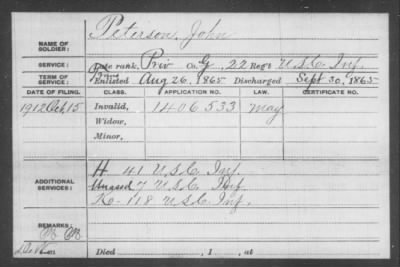 Peterson, John
NAME OF SOLDIER:
SERVICE: Late rank, Priv Co. G, 22 Reg't U.S.C. Inf.
TERM OF SERVICE: Enlisted Aug 26, 1865 Discharged Sept 30, 1865
DATE OF FILING. CLASS. APPLICATION NO. LAW. CERTIFICATE NO.
1912 Oct. 15 Invalid, 1406533 May
Widow,
Minor,
H 41 U.S.C. Inf.
ADDITIONAL SERVICES: Unassd 7 U.S.C. Inf.
K- 118 U.S.C. Inf.
REMARKS:
Died , 1 , at